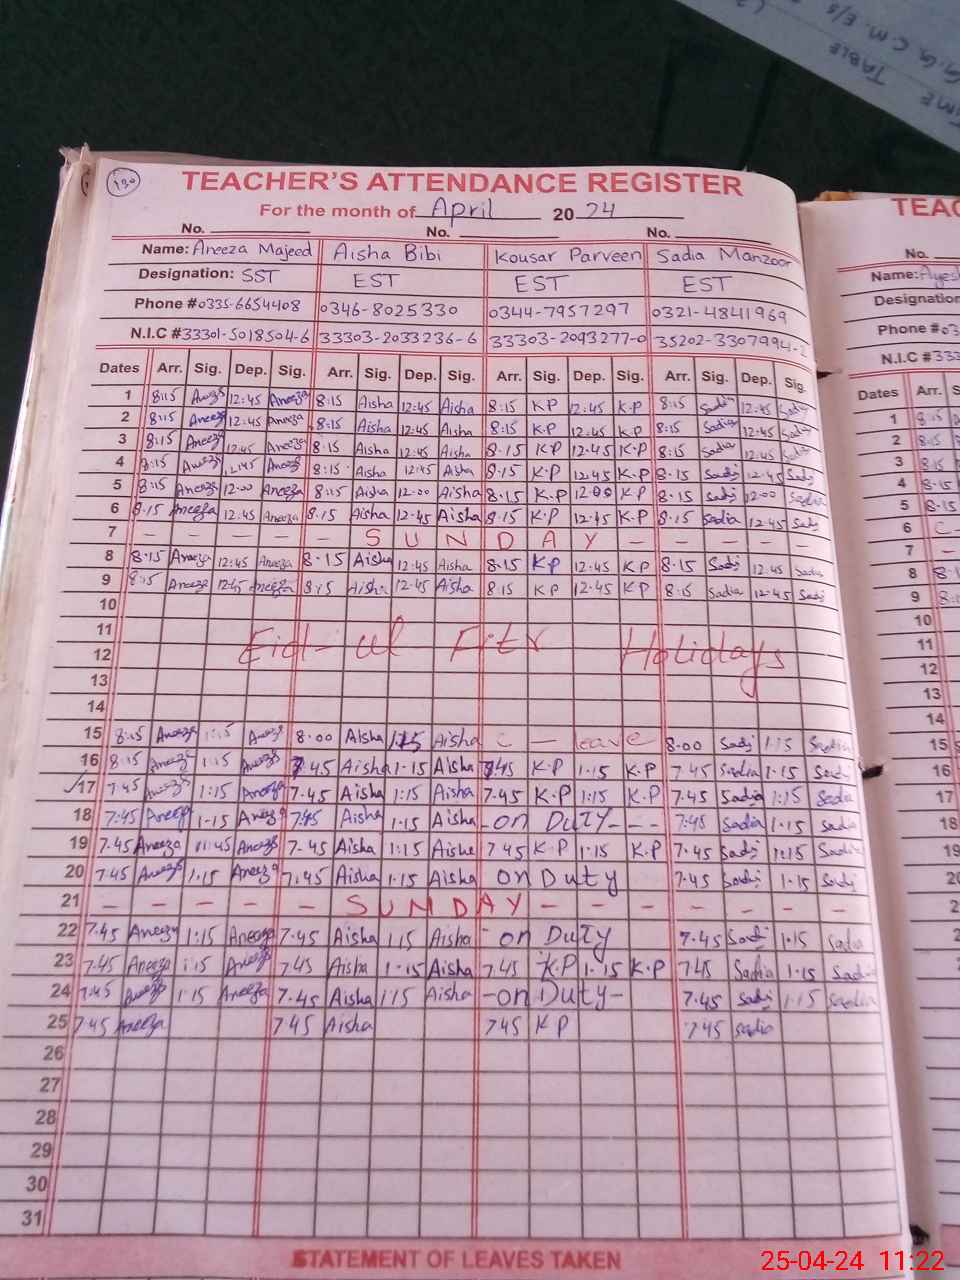 TIME
TABLE
130
TEACHER'S ATTENDANCE REGISTER
For the month of April 2024
No. No. No.
Name: Aneeza Majeed Aisha Bibi Kousar Parveen Sadia Manzoor
Designation: SST EST EST EST
Phone # 0335-6654408 0346-8025330 0344-7957297 0321-4841969
N.I.C # 33301-5018504-6 33303-2033236-6 33303-2093277-0 35202-3307994-2
Dates Arr. Sig. Dep. Sig. Arr. Sig. Dep. Sig. Arr. Sig. Dep. Sig. Arr. Sig. Dep. Sig.
1 8:15 Aneeza 12:45 Aneeza 8:15 Aisha 12:45 Aisha 8:15 KP 12:45 K.P 8:15 Sadia 12:45 Sadia
2 8:15 Aneeza 12:45 Aneeza 8:15 Aisha 12:45 Aisha 8:15 K.P 12:45 K.P 8:15 Sadia 12:45 Sadia
3 8:15 Aneeza 12:45 Aneeza 8:15 Aisha 12:45 Aisha 8.15 K.P 12.45 K.P 8:15 Sadia 12:45 Sadia
4 8:15 Aneeza 12:45 Aneeza 8:15 Aisha 12:45 Aisha 8.15 K.P 12.45 K.P 8.15 Sadia 12.45 Sadia
5 8:15 Aneeza 12:00 Aneeza 8:15 Aisha 12.00 Aisha 8.15 K.P 12.00 K.P 8.15 Sadia 12.00 Sadia
6 8.15 Aneeza 12:45 Aneeza 8.15 Aisha 12.45 Aisha 8.15 K.P 12.45 K.P 8.15 Sadia 12.45 Sadia
7 - - - - - S U N D A Y - - - - -
8 8.15 Aneeza 12:45 Aneeza 8.15 Aisha 12:45 Aisha 8.15 KP 12:45 KP 8.15 Sadia 12.45 Sadia
9 8:15 Aneeza 12:45 Aneeza 8:15 Aisha 12.45 Aisha 8.15 KP 12.45 KP 8:15 Sadia 12.45 Sadia
10
11 Eid-ul Fitr Holidays
12
13
14
15 8:15 Aneeza 1:15 Aneeza 8.00 Aisha 1:15 Aisha C - leave 8.00 Sadia 1.15 Sadia
16 8:15 Aneeza 1:15 Aneeza 7.45 Aisha 1.15 Aisha 7.45 K.P 1.15 K.P 7.45 Sadia 1.15 Sadia
17 7.45 Aneeza 1:15 Aneeza 7.45 Aisha 1:15 Aisha 7.45 K.P 1:15 K.P 7.45 Sadia 1:15 Sadia
18 7.45 Aneeza 1.15 Aneeza 7.45 Aisha 1.15 Aisha - on Duty - - - 7.45 Sadia 1.15 Sadia
19 7.45 Aneeza 11:45 Aneeza 7.45 Aisha 1:15 Aisha 7.45 K.P 1.15 K.P 7.45 Sadia 1:15 Sadia
20 7.45 Aneeza 1.15 Aneeza 7.45 Aisha 1.15 Aisha on Duty 7.45 Sadia 1.15 Sadia
21 - - - - - S U N D A Y - - - - - -
22 7.45 Aneeza 1:15 Aneeza 7.45 Aisha 1.15 Aisha - on Duty 7.45 Sadia 1.15 Sadia
23 7.45 Aneeza 1:15 Aneeza 7.45 Aisha 1.15 Aisha 7.45 K.P 1.15 K.P 7.45 Sadia 1.15 Sadia
24 7.45 Aneeza 1:15 Aneeza 7.45 Aisha 1:15 Aisha -on Duty- 7.45 Sadia 1.15 Sadia
25 7.45 Aneeza 7.45 Aisha 7.45 KP 7.45 Sadia
26
27
28
29
30
31
STATEMENT OF LEAVES TAKEN
No.
Name:
Designation
Phone # 03
N.I.C # 333
Dates Arr. S
1 8:15
2 8:15
3 8.15
4 8.15
5 8.15
6 C -
7 -
8
9
10
11
12
13
14
15
16
17
18
19
25-04-24 11:22